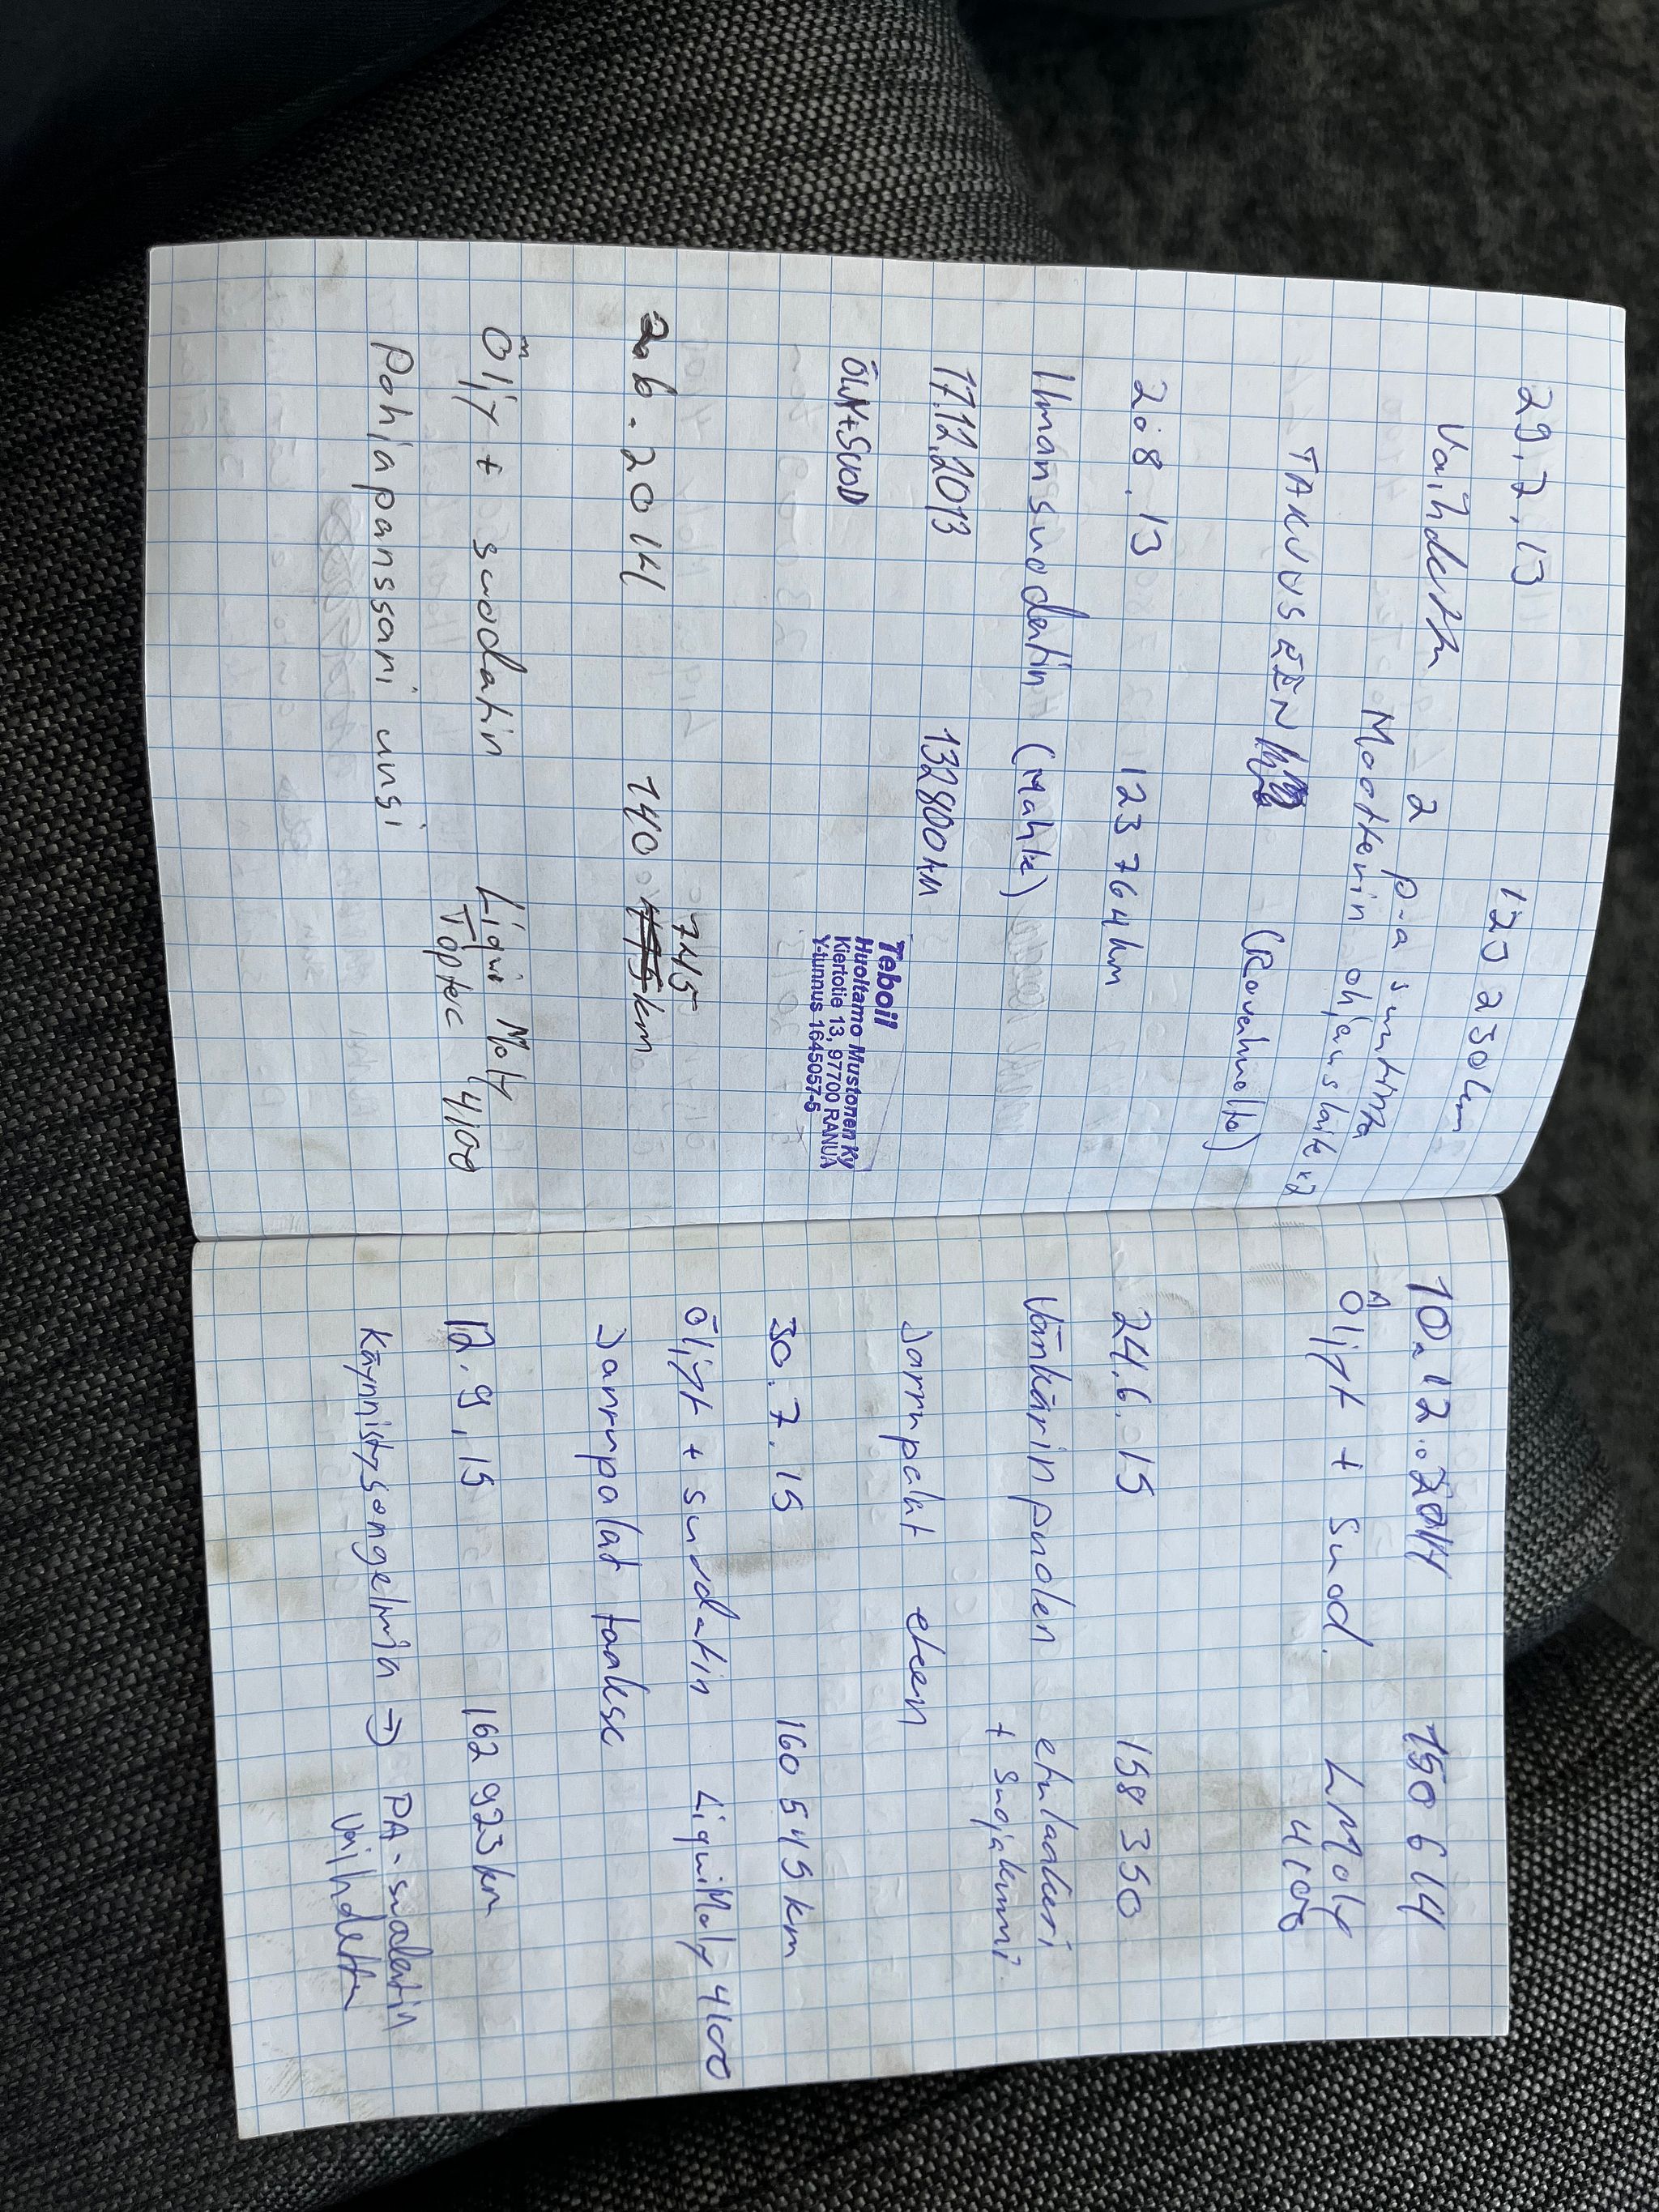 29.7.13 123 230km
Vaihdettu 2 p-a suutinta
Moottorin ohjauslaite x2
TAKUUSEEN
(Rovahuolto)
2.8.13 123 764km
Ilmansuodatin (Mahle)
17.12.2013 132800km
ÖLJY+SUOD
Teboil
Huoltamo Mustonen Ky
Kiertotie 13, 97700 RANUA
Y-tunnus 1645057-5
2.6.2014 140 745 km
Öljy + suodatin Liqui Moly
Toptec 4100
Pohjapanssari uusi
10.12.2014 150 614
Öljyt + Suod. LMoly
4100
24.6.15 158 350
Vänkärin puolen etulaakeri
+ Suojakumi
Jarrupalat eteen
30.7.15 160 545 km
Öljyt + suodatin LiquiMoly 4100
Jarrupalat taakse
12.9.15 162 923km
Käynnistysongelmia → PA-suodatin
Vaihdettu